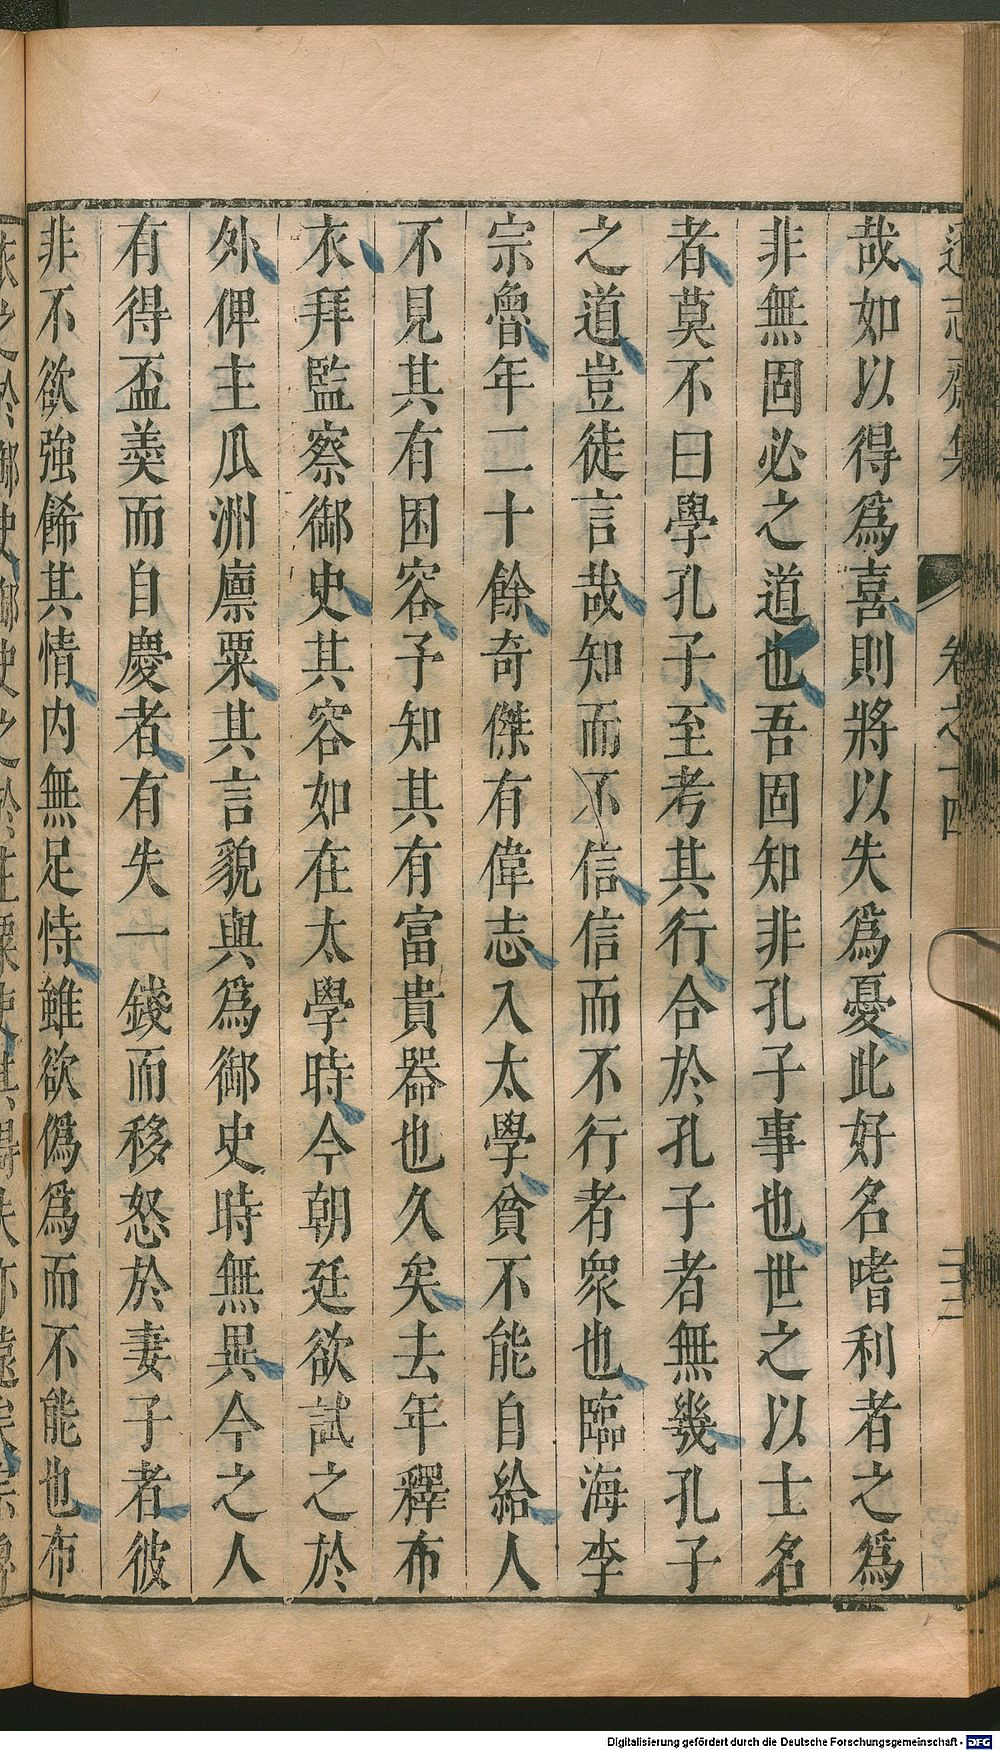 遜志齋集 卷之十四 二三
哉如以得爲喜則將以失爲憂此好名嗜利者之爲
非無固必之道也吾固知非孔子事也世之以士名
者莫不曰學孔子至考其行合於孔子者無幾孔子
之道豈徒言哉知而不信信而不行者衆也臨海李
宗魯年二十餘奇傑有偉志入太學貧不能自給人
不見其有困容予知其有富貴器也久矣去年釋布
衣拜監察御史其容如在太學時今朝廷欲試之於
外俾主瓜洲廪粟其言貌與爲御史時無異今之人
有得盃羮而自慶者有失一錢而移怒於妻子者彼
非不欲強餙其情内無足恃雖欲僞爲而不能也布
衣之於御史御史之於主粟吏其得失亦遠矣宗魯
Digitalisierung gefördert durch die Deutsche Forschungsgemeinschaft - DFG